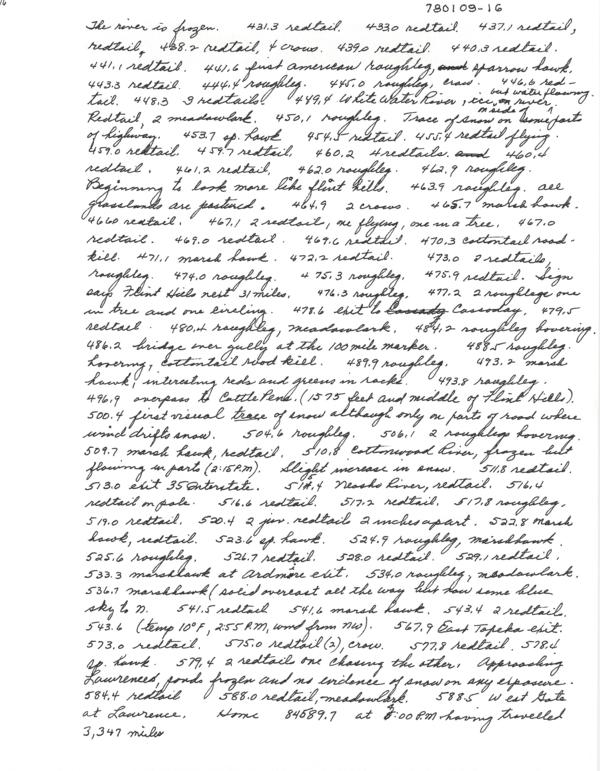 16
780109-16
The river is frozen. 431.3 redtail. 433.0 redtail. 437.1 redtail,
redtail, 438.2 redtail, 4 crows. 439.0 redtail. 440.3 redtail.
441.1 redtail. 441.6 first american roughleg, sparrow hawk.
443.3 redtail. 444.4 roughleg. 445.0 roughleg, crow. 446.6 red-
tail. 448.3 3 redtails. 449.4 White Water River, ice on river, but water flowing.
Redtail, 2 meadowlark. 450.1 roughleg. Trace of snow on N side of some parts
of highway. 453.7 sp. hawk 454.5 redtail. 455.4 redtail flying.
459.0 redtail. 459.7 redtail, 460.2 4 redtails. 460.4
redtail. 461.2 redtail, 462.0 roughleg. 462.9 roughleg.
Beginning to look more like flint hills. 463.9 roughleg. all
grasslands are pastured. 464.9 2 crows. 465.7 marsh hawk.
466.0 redtail. 467.1 2 redtail, one flying, one in a tree. 467.0
redtail. 469.0 redtail. 469.6 redtail. 470.3 cottontail road-
kill. 471.1 marsh hawk. 472.2 redtail. 473.0 2 redtails,
roughleg. 474.0 roughleg. 475.3 roughleg. 475.9 redtail. Sign
says Flint Hills next 31 miles. 476.3 roughleg. 477.2 2 roughlegs one
in tree and one circling. 478.6 exit to Cassoday. 479.5
redtail. 480.4 roughleg, meadowlark. 484.2 roughleg hovering.
486.2 bridge over gully at the 100 mile marker. 488.5 roughleg.
hovering, cottontail road kill. 489.9 roughleg. 493.2 marsh
hawk, interesting reds and greens in rocks. 493.8 roughleg.
496.9 overpass to Cattle Pens. (1575 feet and middle of Flint Hills).
500.4 first visual trace of snow although only on parts of road where
wind drifts snow. 504.6 roughleg. 506.1 2 roughlegs hovering.
509.7 marsh hawk, redtail. 510.8 Cottonwood River, frozen but
flowing in parts (2:15 P.M). Slight increase in snow. 511.8 redtail.
513.0 exit 35 Interstate. 514.4 Neosho River, redtail. 516.4
redtail on pole. 516.6 redtail. 517.2 redtail. 517.8 roughleg.
519.0 redtail. 520.4 2 juv. redtail 2 inches apart. 522.8 marsh
hawk, redtail. 523.6 sp. hawk. 524.9 roughleg, marsh hawk.
525.6 roughleg. 526.7 redtail. 528.0 redtail. 529.1 redtail.
533.3 marsh hawk at Ardmore exit. 534.0 roughleg, meadowlark.
536.7 marsh hawk (solid overcast all the way but now some blue
sky to N. 541.5 redtail 541.6 marsh hawk. 543.4 2 redtail.
543.6 (temp 10°F, 2:55 P.M, wind from NW). 567.9 East Topeka exit.
573.0 redtail. 575.0 redtail (2), crow. 577.8 redtail. 578.4
sp. hawk. 579.4 2 redtail one chasing the other. Approaching
Lawrence, ponds frozen and no evidence of snow on any exposure.
584.4 redtail 588.0 redtail, meadowlark. 588.5 West Gate
at Lawrence. Home 84589.7 at :00 P.M. having travelled
3,347 miles